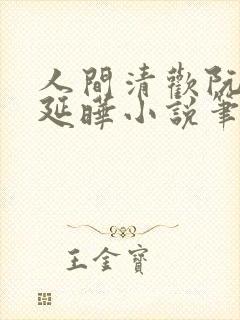 人間清歡阮
延曄小説筆
王金寶